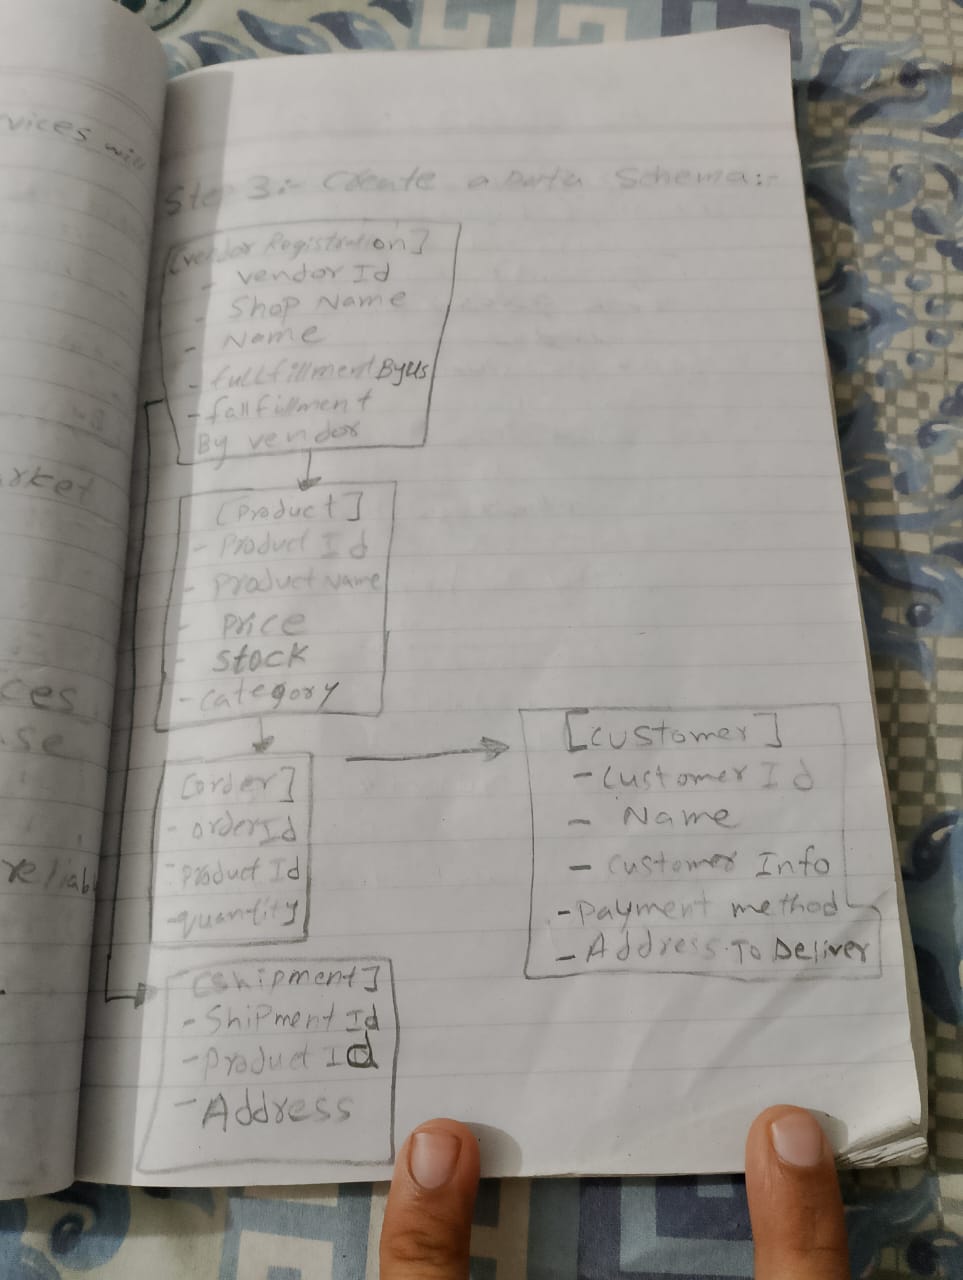 vices will
rket
ces
se
reliab
Step 3:- Create a Data Schema:-
[vendor Registration]
- vendor Id
- Shop Name
- Name
- fullfillment By Us
- fallfillment
By vendor
[Product]
- Product Id
- Product Name
- Price
- Stock
- Category
[order]
- order Id
- Product Id
- quantity
[Customer]
- Customer Id
- Name
- Customer Info
- Payment method
- Address To Deliver
[Shipment]
- Shipment Id
- Product Id
- Address